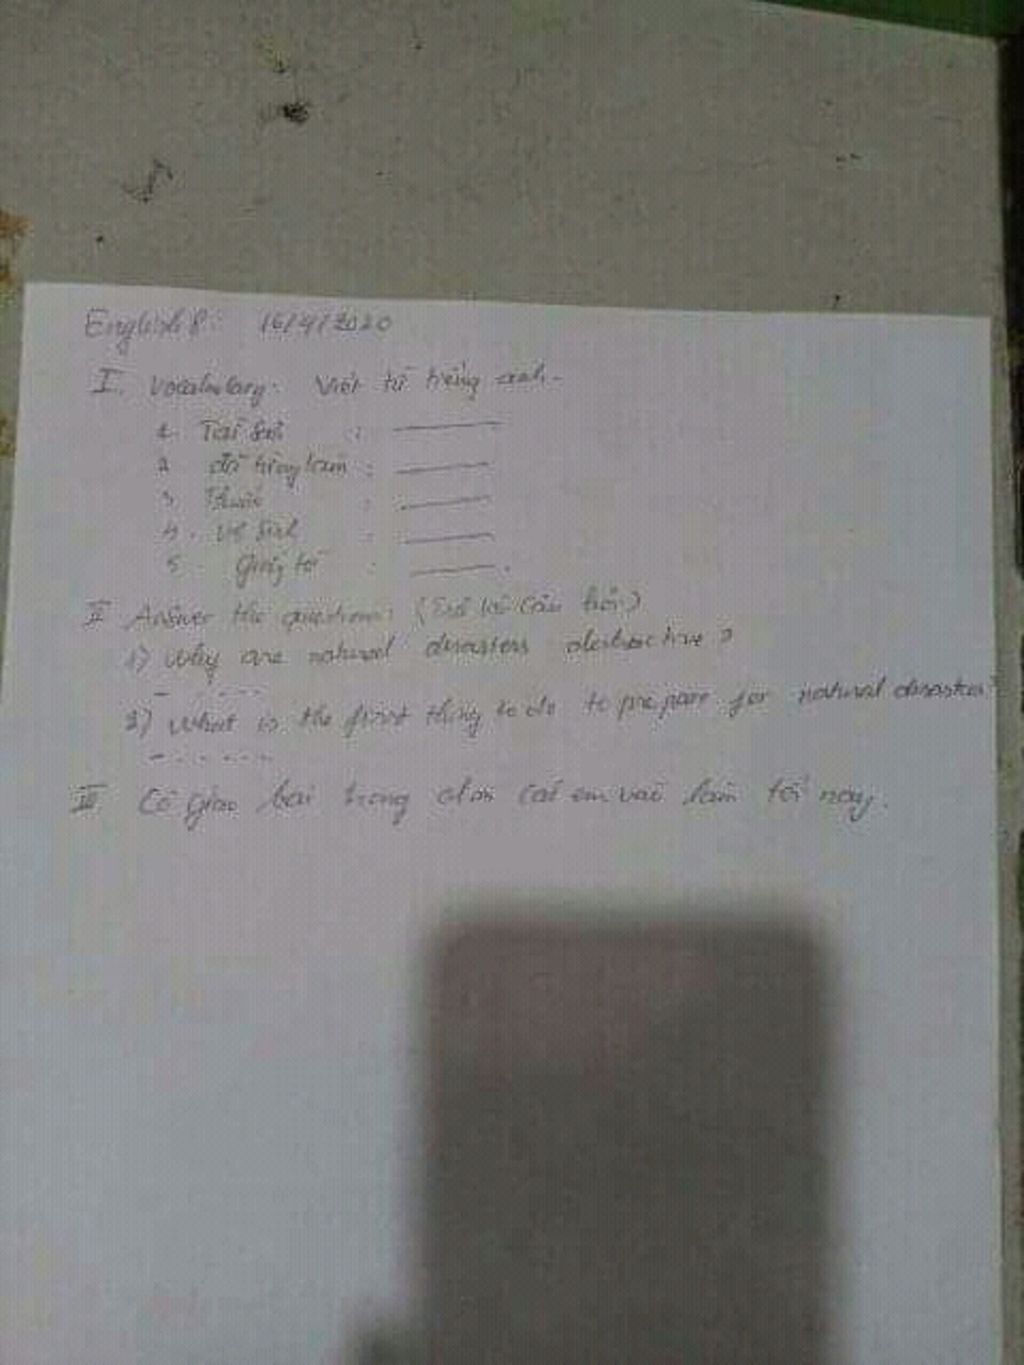 English 8: 16/4/2020
I. Vocabulary: Viết từ tiếng anh.
1. Tài sản : ______
2. đồ dùng :
3. Thuốc : ______
4. Vệ sinh : ______
5. Giấy tờ : ______.
II Answer the questions: (Trả lời câu hỏi)
1) Why are natural disasters destructive?
- . . . . .
2) What is the first thing to do to prepare for natural disaster?
- . . . . .
III Cô giao bài trong các em vào làm tối nay.